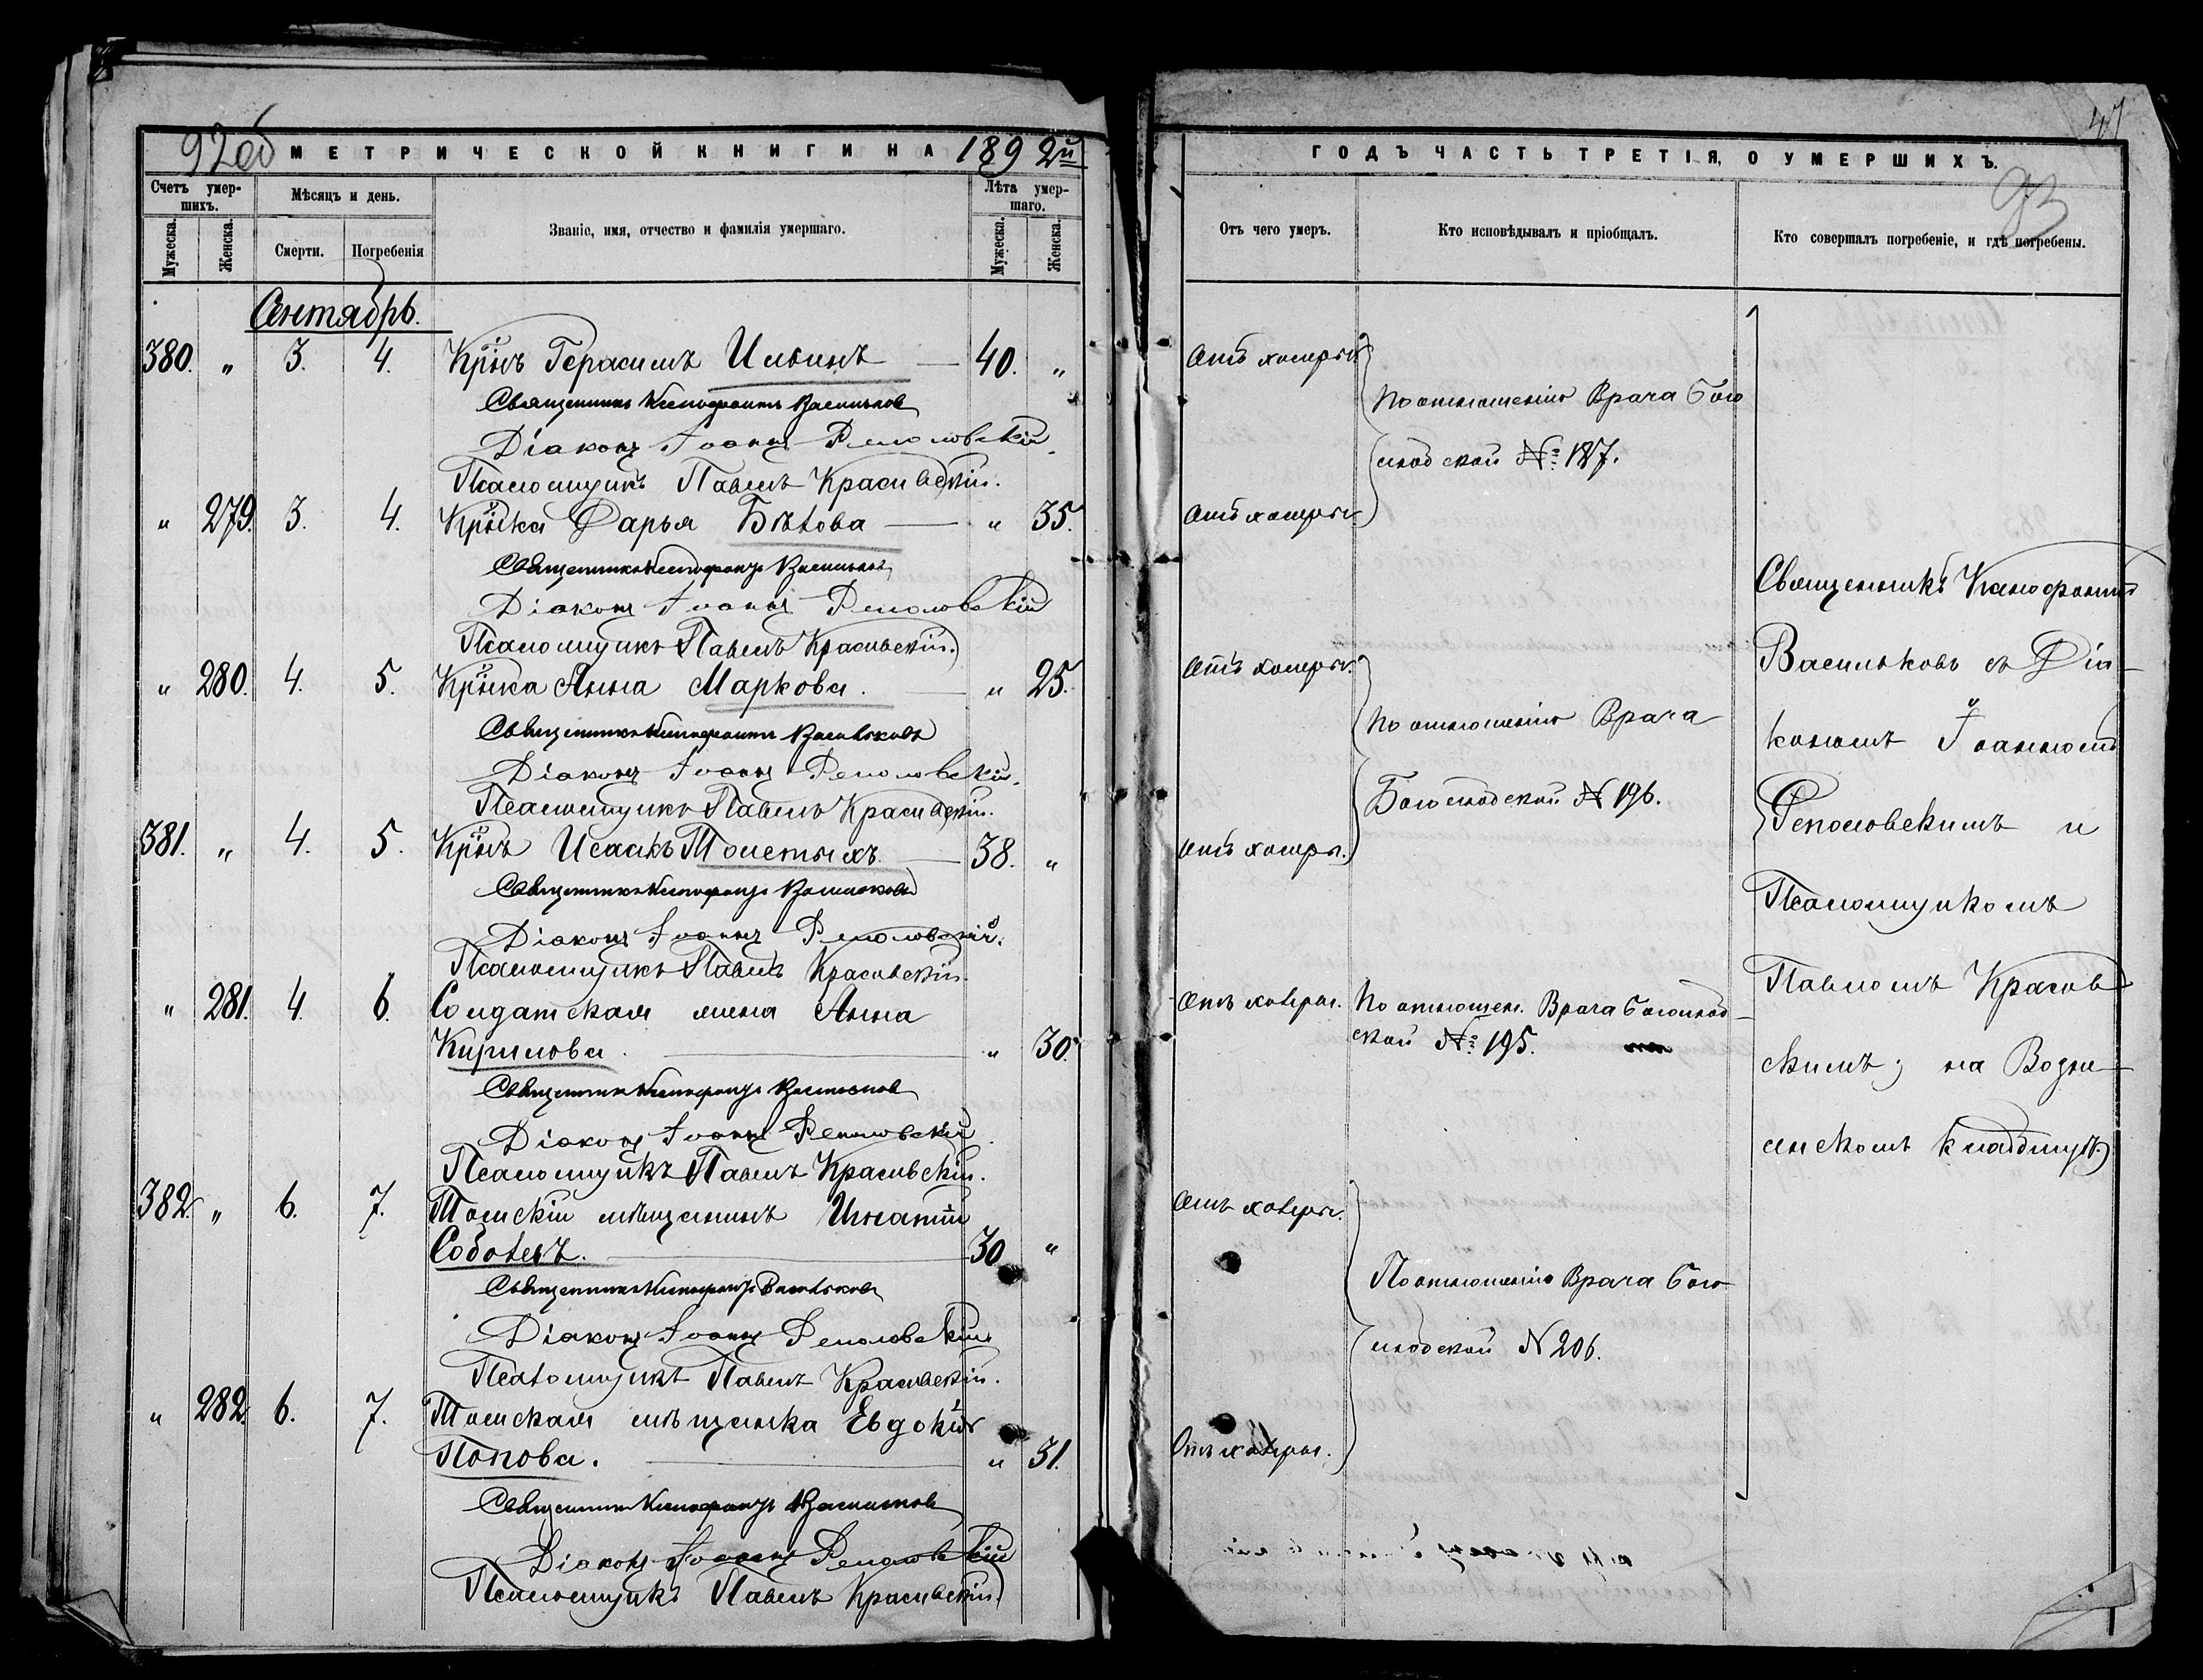 92об
МЕТРИЧЕСКОЙ КНИГИ НА 1892й
Счетъ умер-
шихъ.
Мѣсяцъ и день.
Званіе, имя, отчество и фамилія умершаго.
Лѣта умер-
шаго.
Мужеска.
Женска.
Смерти.
Погребенія
Мужеска.
Женска.
Сентябрь.
380. " 3. 4. Кр̃нъ Герасимъ Ильинъ — 40. "
Священникъ Ксенофонтъ Васильковъ
Діаконъ Іоаннъ Реполовскій.
Псаломщикъ Павелъ Красивскій.
" 279. 3. 4. Кр̃нка Дарья Бѣлова — " 35.
Священникъ Ксенофонтъ Васильковъ
Діаконъ Іоаннъ Реполовскій
Псаломщикъ Павелъ Красивскій.
" 280. 4. 5. Кр̃нка Анна Маркова. — " 25.
Священникъ Ксенофонтъ Васильковъ
Діаконъ Іоаннъ Реполовскій.
Псаломщикъ Павелъ Красивскій.
381. " 4. 5. Кр̃нъ Исаакъ Толстыхъ. — 38. "
Священникъ Ксенофонтъ Васильковъ
Діаконъ Іоаннъ Реполовскій.
Псаломщикъ Павелъ Красивскій.
" 281. 4. 6. Солдатская жена Анна
Кирилова. — " 30.
Священникъ Ксенофонтъ Васильковъ
Діаконъ Іоаннъ Реполовскій
Псаломщикъ Павелъ Красивскій.
382. " 6. 7. Томскій мѣщанинъ Игнатій
Соболевъ. — 30 "
Священникъ Ксенофонтъ Васильковъ
Діаконъ Іоаннъ Реполовскій
Псаломщикъ Павелъ Красивскій.
" 282. 6. 7. Томская мѣщанка Евдокія
Попова. — " 31.
Священникъ Ксенофонтъ Васильковъ
Діаконъ Іоаннъ Реполовскій
Псаломщикъ Павелъ Красивскій.
47
ГОДЪ ЧАСТЬ ТРЕТІЯ, О УМЕРШИХЪ.
93
Отъ чего умеръ.
Кто исповѣдывалъ и пріобщалъ.
Кто совершалъ погребеніе, и гдѣ погребены.
Отъ холеры.
По отношенію Врача Бого
родской №: 187.
Отъ холеры.
Отъ холеры.
По отношенію Врача
Богородской № 196.
Отъ холеры.
Отъ холеры. По отношен. Врача Богород-
ской №: 195.
Отъ холеры.
По отношенію Врача Бого-
родской № 206.
Отъ холеры.
Священникъ Ксенофонтъ
Васильковъ съ Діа-
кономъ Іоанномъ
Реполовскимъ и
Псаломщикомъ
Павломъ Красив
скимъ; на Возне-
сенскомъ кладбищѣ.